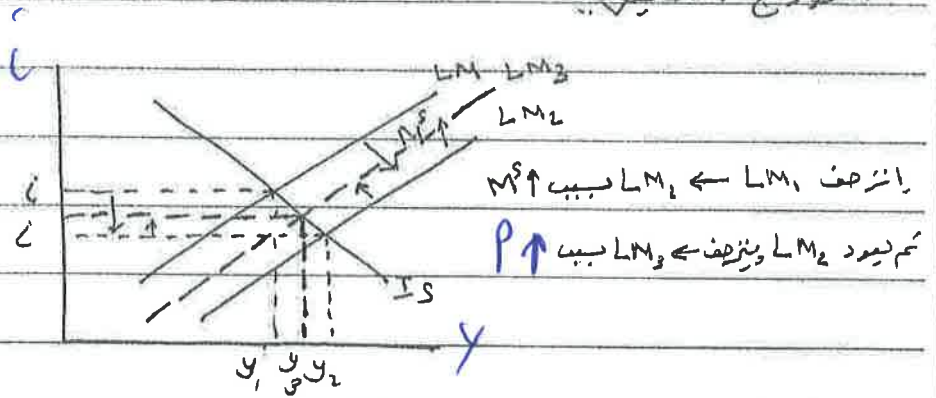 i
LM LM3
LM2
Mˢ↑
انزحف LM1 ← LM2 بسبب Mˢ↑
i
i
ثم يعود LM2 وينزحف ← LM3 بسبب P↑
IS
y1 y3 y2
Y